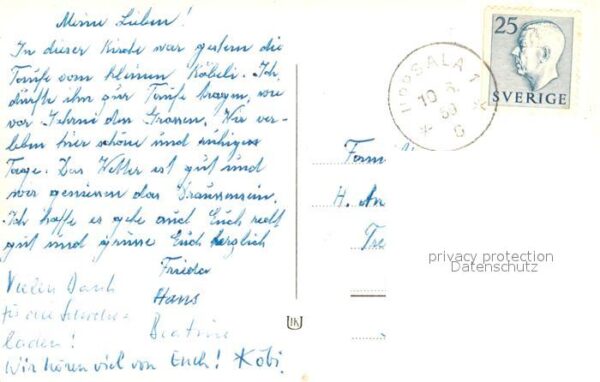 Meine Lieben!
In dieser Kirche war gestern die
Taufe vom kleinen Köbeli. Ich
durfte ihn zur Taufe tragen, wie
vor Jahren den Grossen. Wir ver-
leben hier schöne und ruhige
Tage. Das Wetter ist gut und
wir geniessen das Draussensein.
Ich hoffe es gehe auch Euch recht
gut und grüsse Euch herzlich
Frieda
Hans
Beatrice
Vielen Dank
für die Schocko-
laden!
Wir hören viel von Euch! Köbi.
25
SVERIGE
UPPSALA 1
10
6
Fam
H. An
Tre
privacy protection
Datenschutz